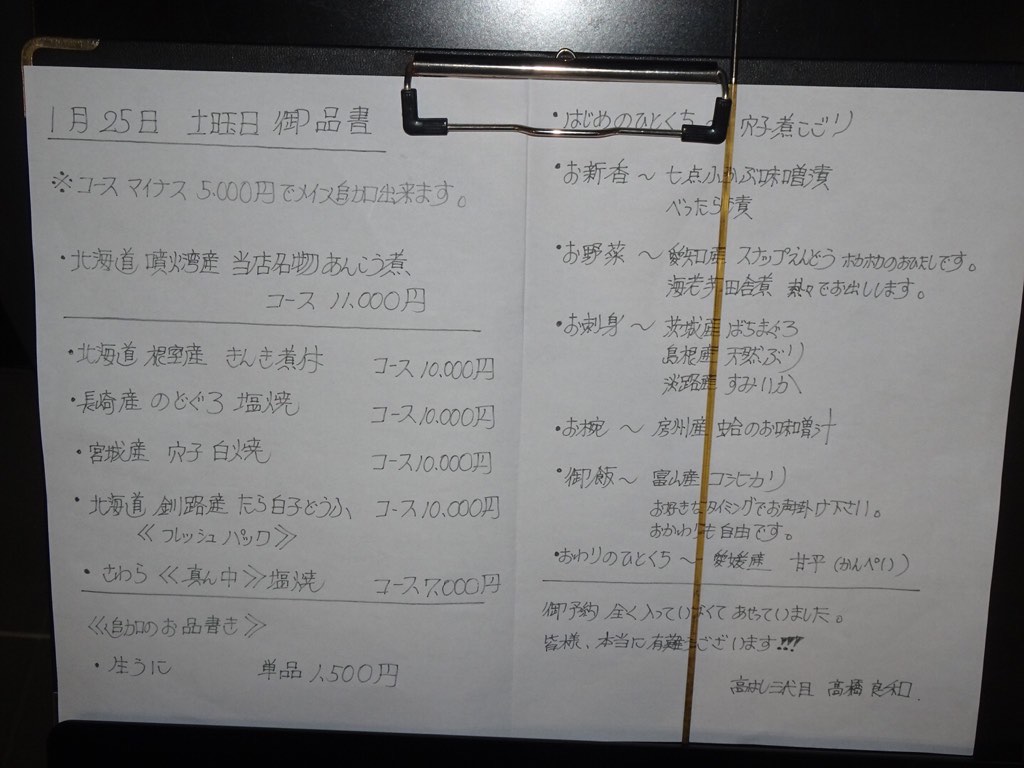 1月25日 土曜日 御品書
※コース マイナス 5.000円でメイン追加出来ます。
・北海道 噴火湾産 当店名物あんこう煮
コース 11.000円
・北海道 根室産 きんき煮付 コース10.000円
・長崎産 のどぐろ 塩焼 コース10.000円
・宮城産 穴子 白焼 コース10.000円
・北海道 釧路産 たら白子どうふ コース10.000円
≪フレッシュパック≫
・さわら≪真ん中≫塩焼 コース7.000円
≪追加のお品書き≫
・生うに 単品 1.500円
・はじめのひとくち〜 穴子煮こごり
・お新香〜 七点小かぶ味噌漬
べったら漬
・お野菜〜 愛知産 スナップえんどう ホカホカのおひたしです。
海老芋田舎煮 熱々でお出しします。
・お刺身〜 茨城産 ばちまぐろ
島根産 天然ぶり
淡路産 すみいか
・お椀〜 房州産 蛤のお味噌汁
・御飯〜 富山産 コシヒカリ
お好きなタイミングでお声掛け下さい。
おかわりも自由です。
・おわりのひとくち〜 愛媛産 甘平(かんぺい)
御予約 全く入っていなくて あせっていました。
皆様、本当に有難うございます!!!
高はし三代目 高橋 良和